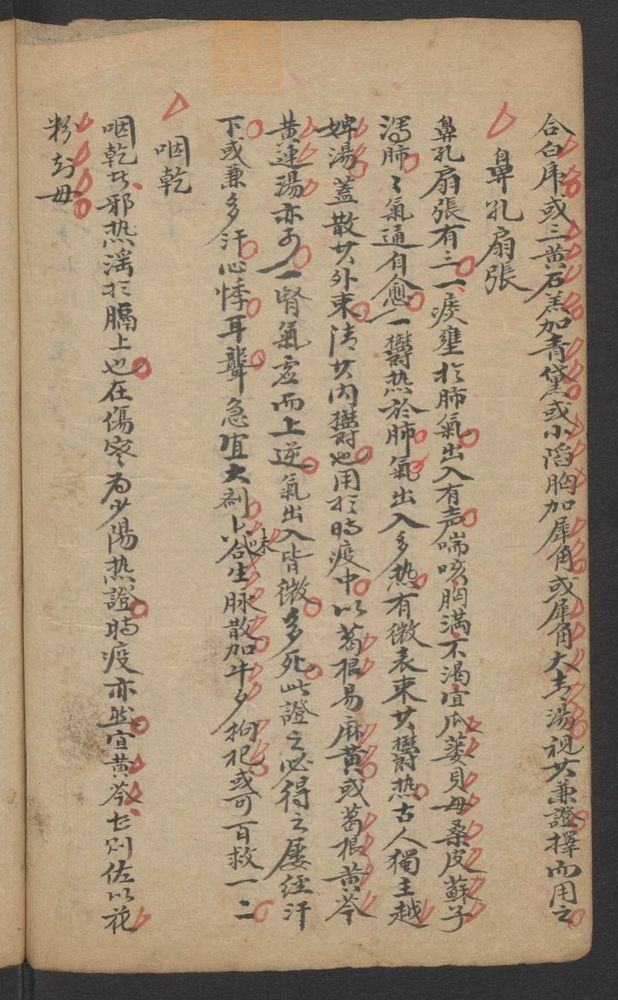 合白虎或三黄石羔加青黛或小陷胸加犀角或犀角大青湯視其兼證擇而用之
鼻孔扇張
鼻孔扇張有三一痰壅於肺氣出入有声喘咳胸滿不渴宜瓜蔞貝母桑皮蘇子
瀉肺々氣通自愈一欝热於肺氣出入多热有微表束其欝热古人獨主越
婢湯蓋散其外束清其内欝也用於時疫中以葛根易麻黄或葛根黄芩
黄連湯亦可一腎氣虚而上逆氣出入皆微多死此證之必得之屡經汗
下或兼多汗心悸耳聾急宜大剂六味合生脉散加牛夕枸杞或可百救一二
咽乾
咽乾其邪热淫於膈上也在傷寒为少陽热證時疫亦然宜黄芩七則佐以花
粉知母